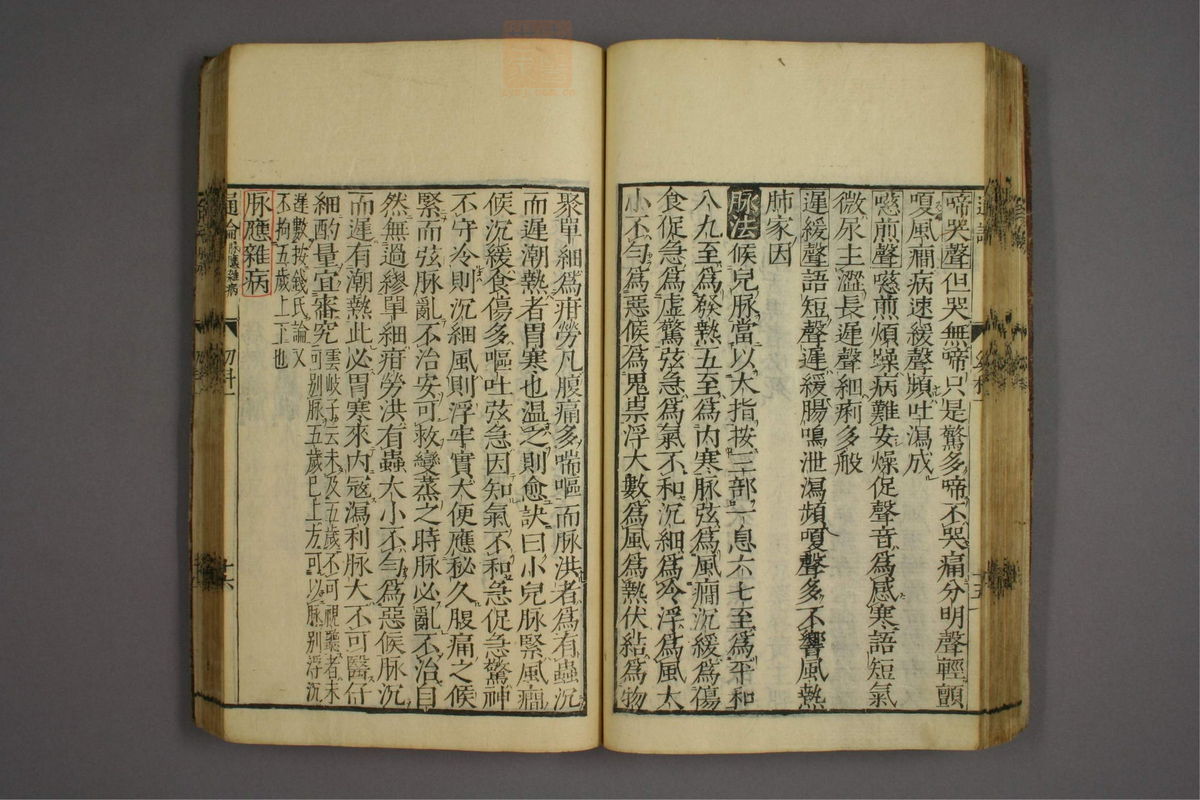 啼哭聲但哭無啼只是驚多啼不哭痛分明聲輕顫
嗄風癎病速緩聲頻吐瀉成
噫煎聲噫煎煩躁病難安燥促聲音爲感寒語短氣
微尿主澀長遲聲細痢多般
遲緩聲語短聲遲緩腸鳴泄瀉頻嗄聲多不響風熱
肺家因
脉法候兒脉當以大指按三部一息六七至爲平和
八九至爲發熱五至爲内寒脉弦爲風癎沉緩爲傷
食促急爲虚驚弦急爲氣不和沉細爲冷浮爲風大
小不勻爲惡候爲鬼祟浮大數爲風爲熱伏結爲物
聚單細爲疳勞凡腹痛多喘嘔而脉洪者爲有蟲沉
而遲潮熱者胃寒也温之則愈訣曰小兒脉緊風癎
候沉緩食傷多嘔吐弦急因知氣不和急促急驚神
不守冷則沉細風則浮牢實大便應秘久腹痛之候
緊而弦脉亂不治安可救變蒸之時脉必亂不治自
然無過繆單細疳勞洪有蟲大小不勻爲惡候脉沉
而遲有潮熱此必胃寒來内寇瀉利脉大不可醫仔
細酌量宜審究雲岐子云未及五歲不可視聽者未
可别脉五歲已上方可以脉别浮沉
遲數按錢氏論又
不拘五歲上下也
脉應雜病
通論
十六